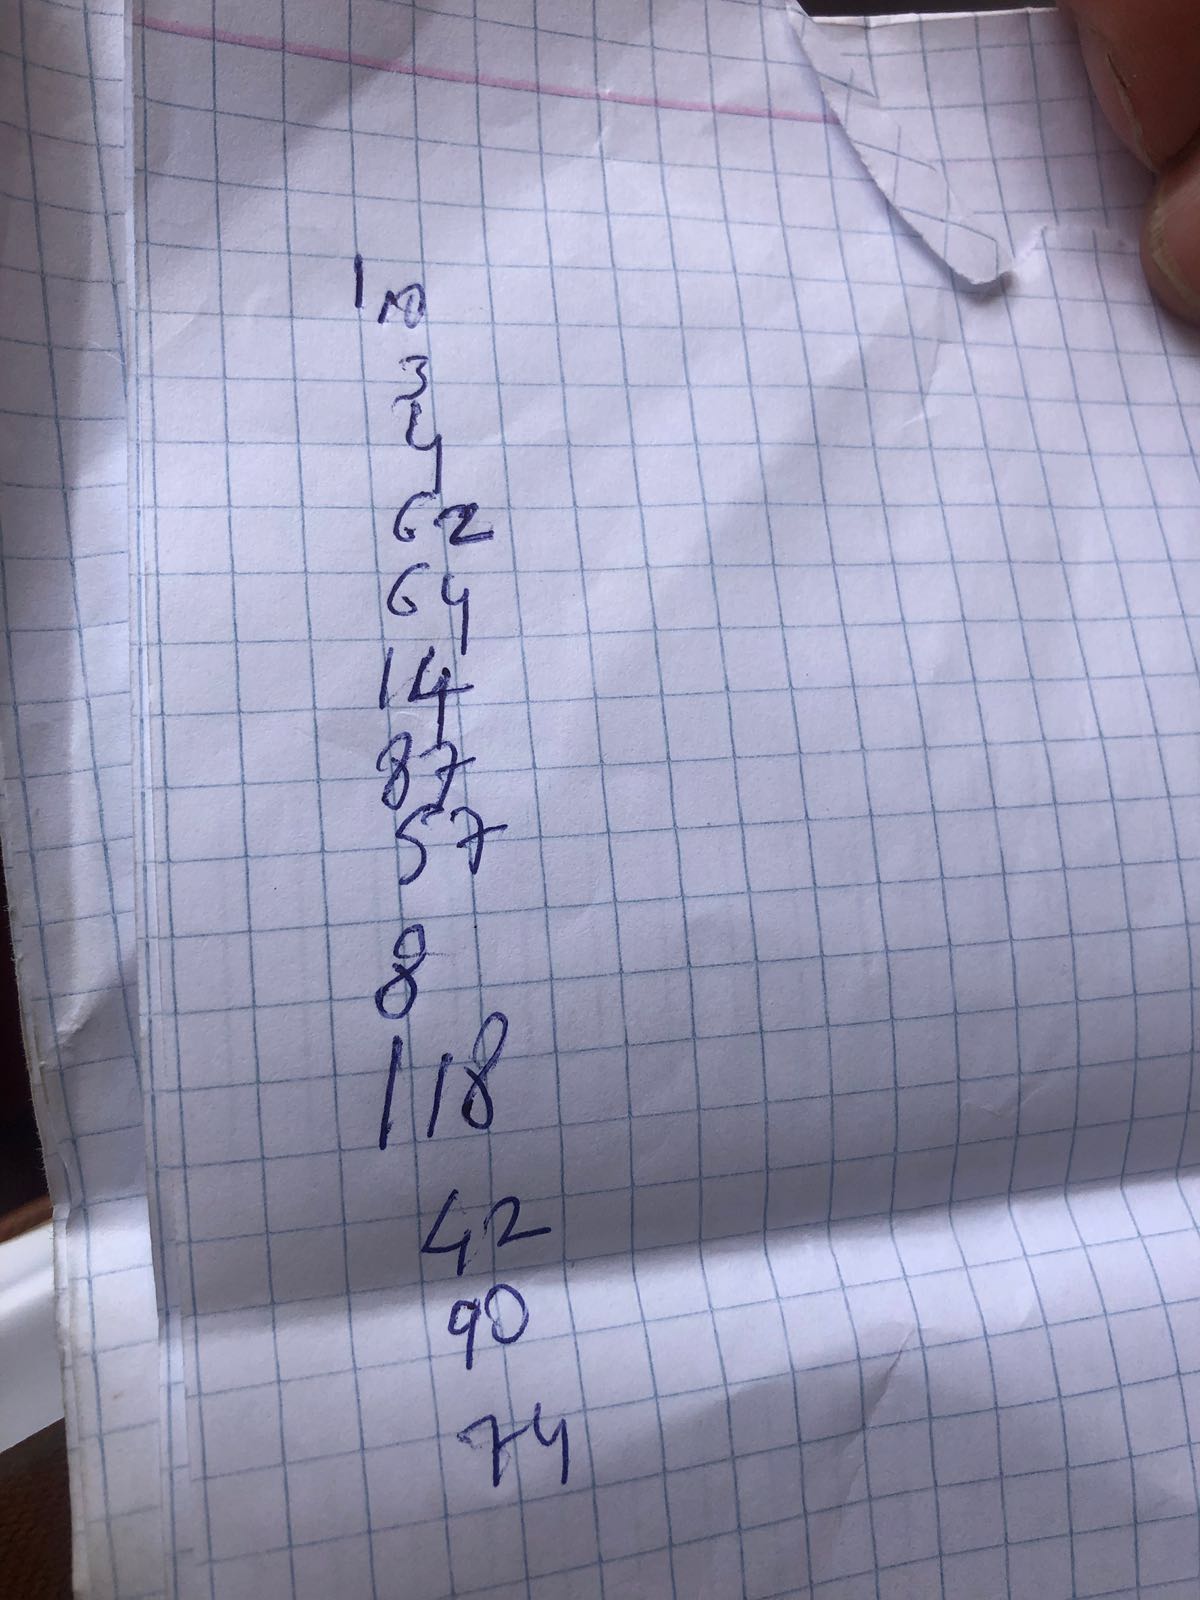 110
3
4
62
64
14
87
57
8
118
42
90
74